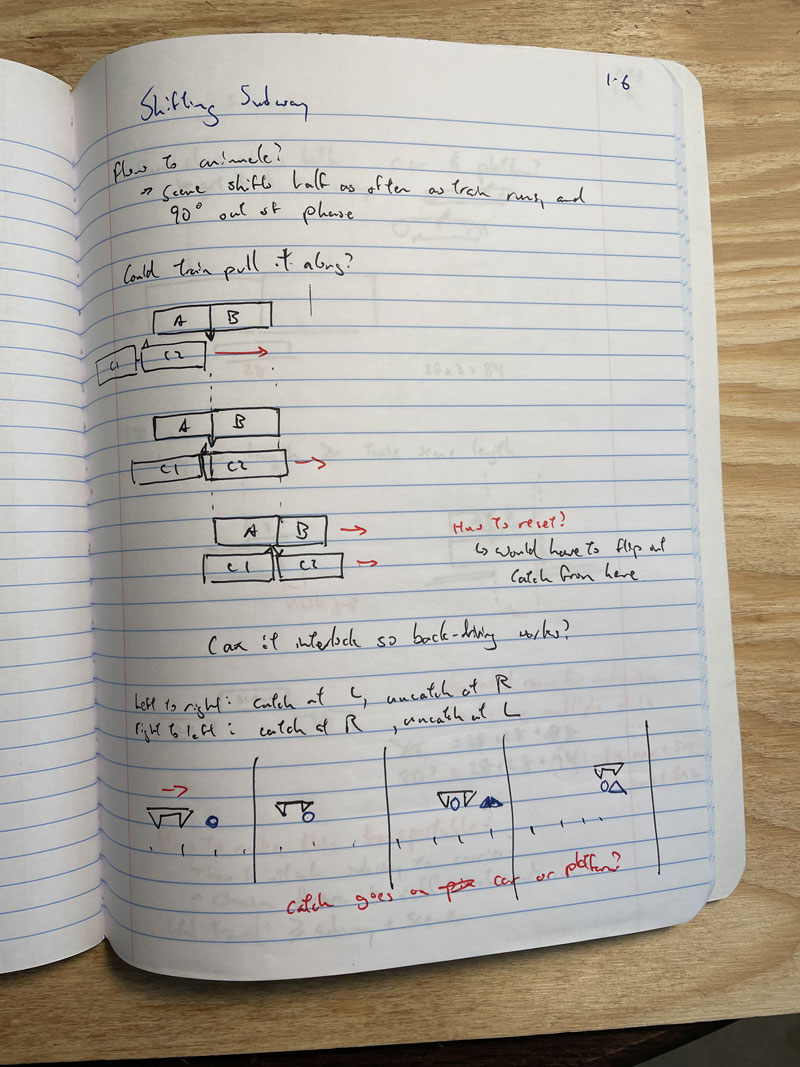 1.6
Shifting Subway
How to animate?
→ Scene shifts half as often as train runs, and
90° out of phase
Could train pull it along?
A B
C1 C2
A B
C1 C2
A B
C1 C2
How to reset?
↳ would have to flip out
catch from here
Can it interlock so back-driving works?
Left to right: catch at L, uncatch at R
right to left: catch at R, uncatch at L
catch goes on car or platform?